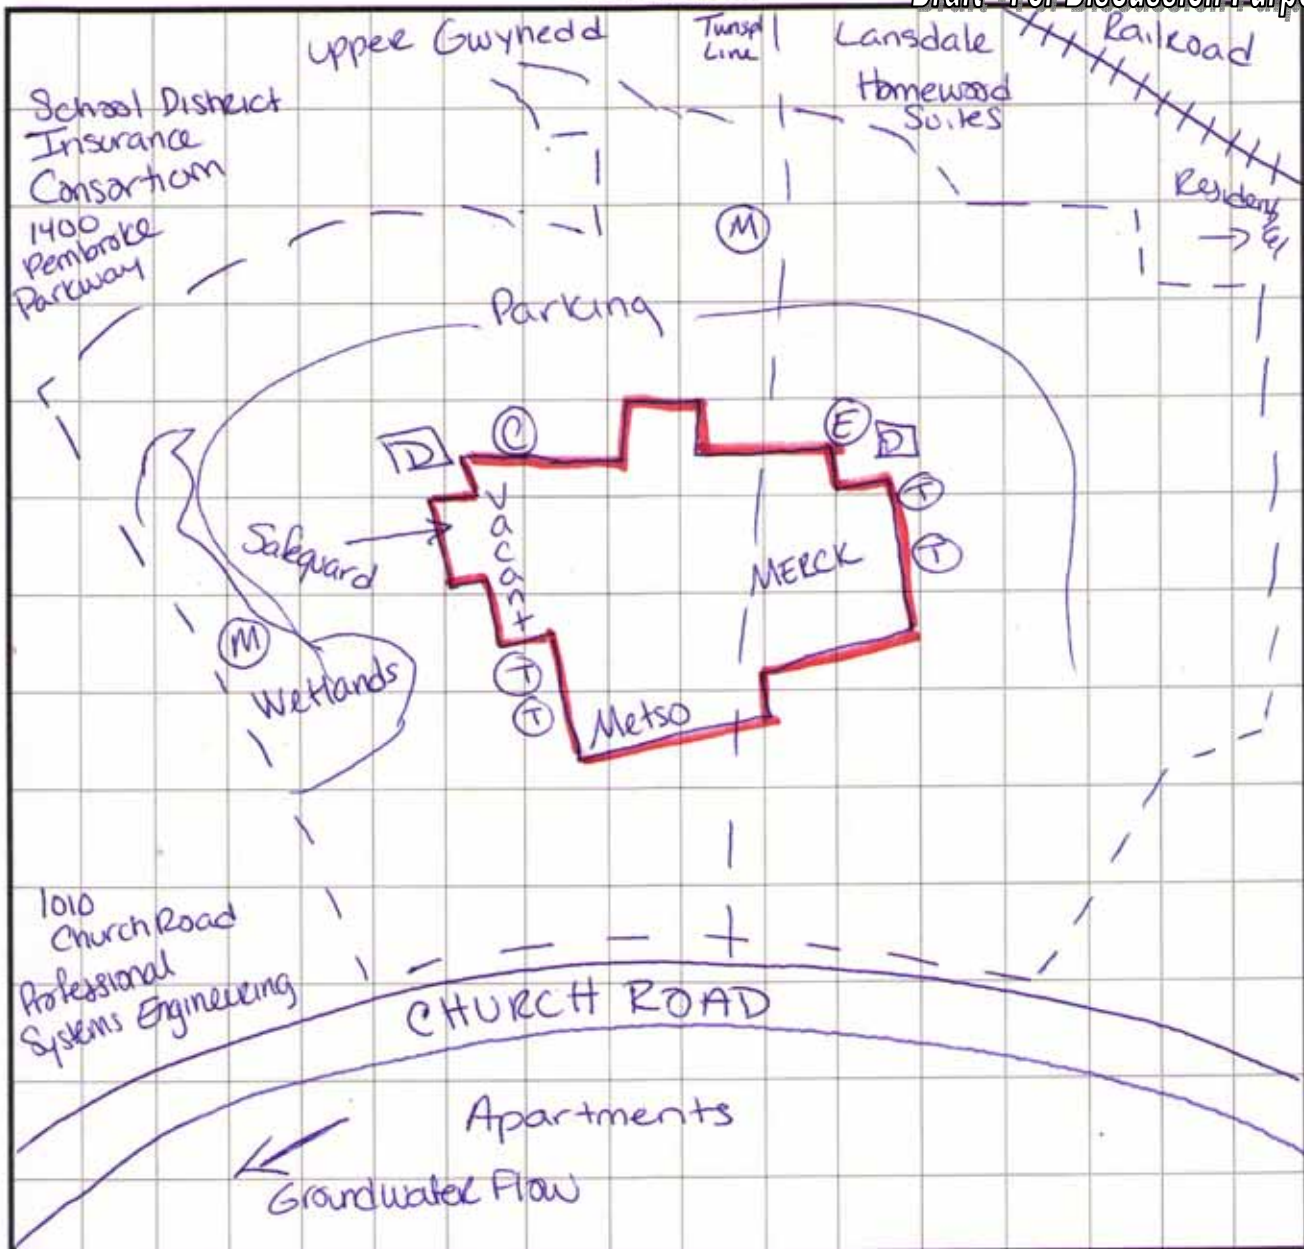 Draft - For Discussion Purp
Upper Gwynedd
Twnsp
Line
Lansdale
Railroad
Homewood
Suites
School District
Insurance
Consortium
1400
Pembroke
Parkway
Residential
M
Parking
D
C
E
D
Vacant
T
T
Safeguard
MERCK
M
Wetlands
T
T
Metso
1010
Church Road
Professional
Systems Engineering
CHURCH ROAD
Apartments
Groundwater Flow